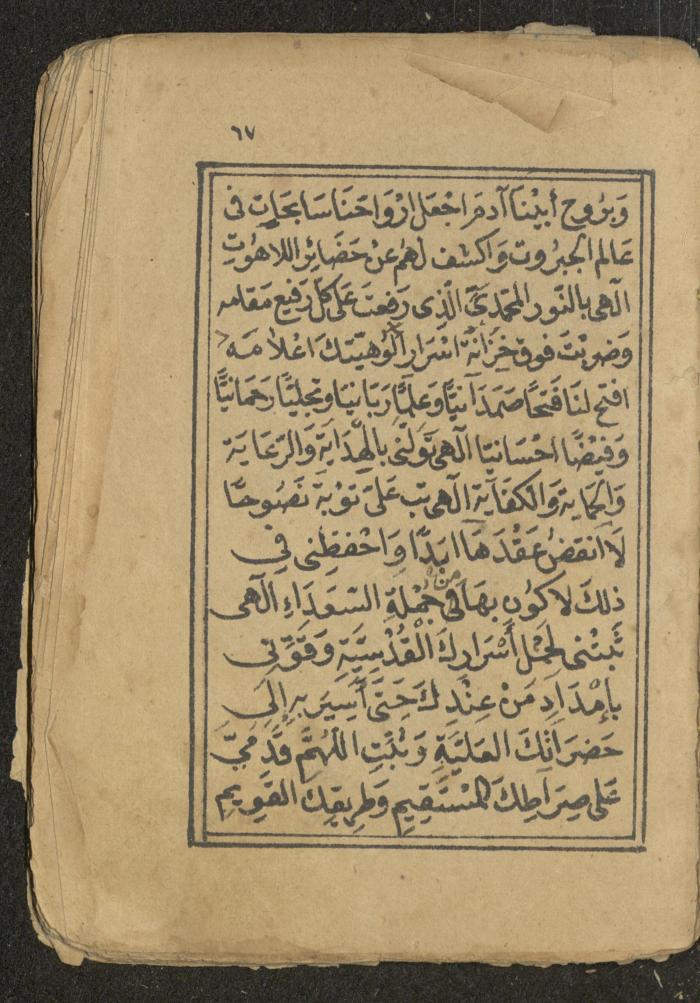 ٦٧
وَبِرُوحِ أَبِيْنَا آدَمَ اجْعَل اَرْوَاحَنَا سَابِحَاتٍ فى
عَالَمِ الْجَبَرُوتِ وَاكشف لَهُم عَنْ حَضَائِرِ اللاهُوتِ
الٓهى بالنّورِ المحمّدىّ الّذِى رَفَعتَ عَلى كلّ رَفيعٍ مَقامه
وَضَربْتَ فوق خِزَانَة اسْرَارِ اَلُوهيّتكَ اعْلَامَه
افتح لنَا فَتحًا صَمَدَانيًّا وَعلمًا رَبّانيّا وتجليًّا رَحمَانيًّا
وَفيْضًا احْسَانيّا الٓهى تَولّنى بالهِدَايَةِ وَالرّعَايَة
وَالحمَاية وَالكفَايَة الٓهى تب عَلىّ توْبة نَصُوحًا
لَا انقضُ عَقْدَهَا ابَدًا وَاحْفظنِى فِي
ذلكَ لاكوُن بهَا فى جُمْلةِ السّعَدَاءِ الٓهى
من
ثَبّتْنى لحَمْلِ أَسْرَارِكَ الْقُدْسِيَّةِ وَقَوِّنِى
بِإمْدَادٍ مَنْ عِنْدِكَ حَتَّى أَسِيَر بِهِ إِلَى
حَضَرَاتِكَ العَليَّةِ وَثَبِّتِ اللّهُمَّ قَدَمِىّ
عَلى صِرَاطِكَ المُسْتَقِيمِ وَطَرِيقِكَ القَوِيمِ